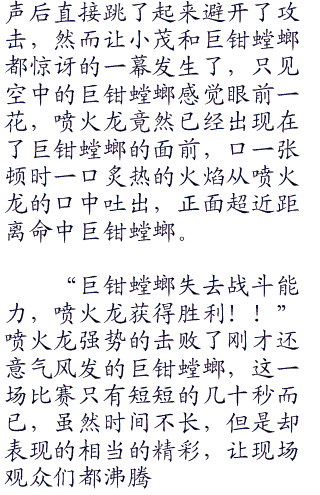 声后直接跳了起来避开了攻
击，然而让小茂和巨钳螳螂
都惊讶的一幕发生了，只见
空中的巨钳螳螂感觉眼前一
花，喷火龙竟然已经出现在
了巨钳螳螂的面前，口一张
顿时一口炙热的火焰从喷火
龙的口中吐出，正面超近距
离命中巨钳螳螂。
“巨钳螳螂失去战斗能
力，喷火龙获得胜利！！”
喷火龙强势的击败了刚才还
意气风发的巨钳螳螂，这一
场比赛只有短短的几十秒而
已，虽然时间不长，但是却
表现的相当的精彩，让现场
观众们都沸腾